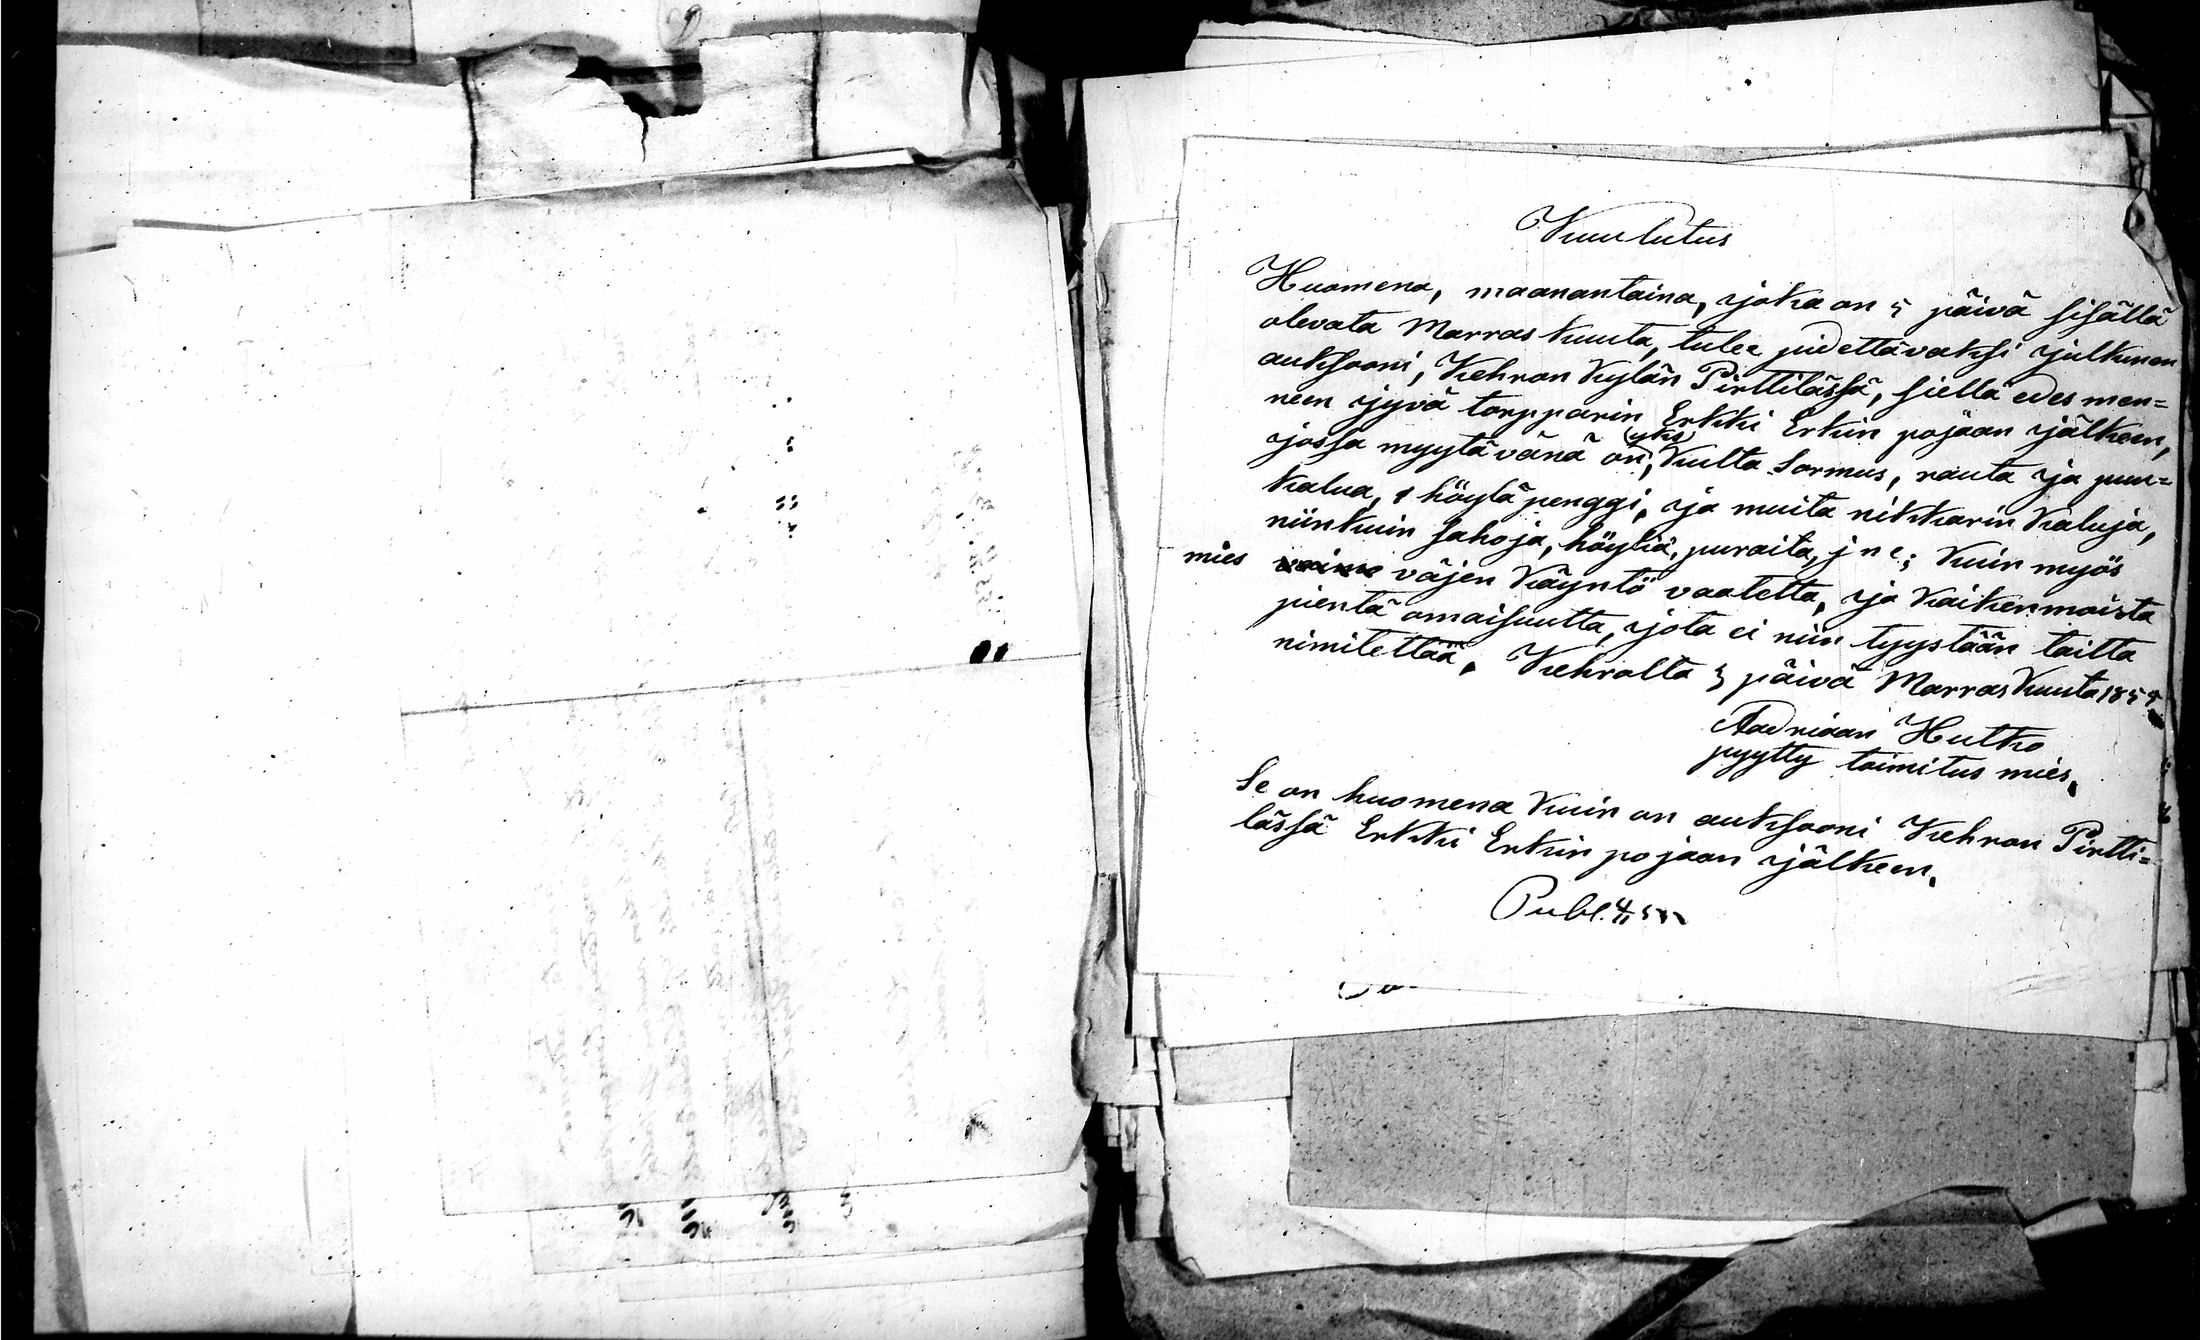 Kuulutus
Huomena, maanantaina, joka on 5 päivä sisällä
olevata Marras kuuta, tulee pidettäväksi julkinen
auksooni, Kehron Kylän Pirttilässä, siellä edes men=
neen jyvä torpparin Erkki Erkin pojaan jälkeen,
jossa myytävänä on, (yks) Kulta Sormus, rauta ja puu=
kalua, 1 höylä penggi, ja muita nikkarin kaluja,
niinkuin sahoja, höyliä, puraita, j n e; kuin myös
mies väjen Käyntö vaatetta, ja kaikenmoista
pientä omaisuutta, jota ei niin tyystään taitta
nimitettää. Kehrolta 3 päivä Marras kuuta 185
Aadriaan Hutko
pyytty toimitus mies.
Se on huomena kuin on auksooni Kehron Pirtti=
lässä Erkki Erkin pojaan jälkeen.
Publ.